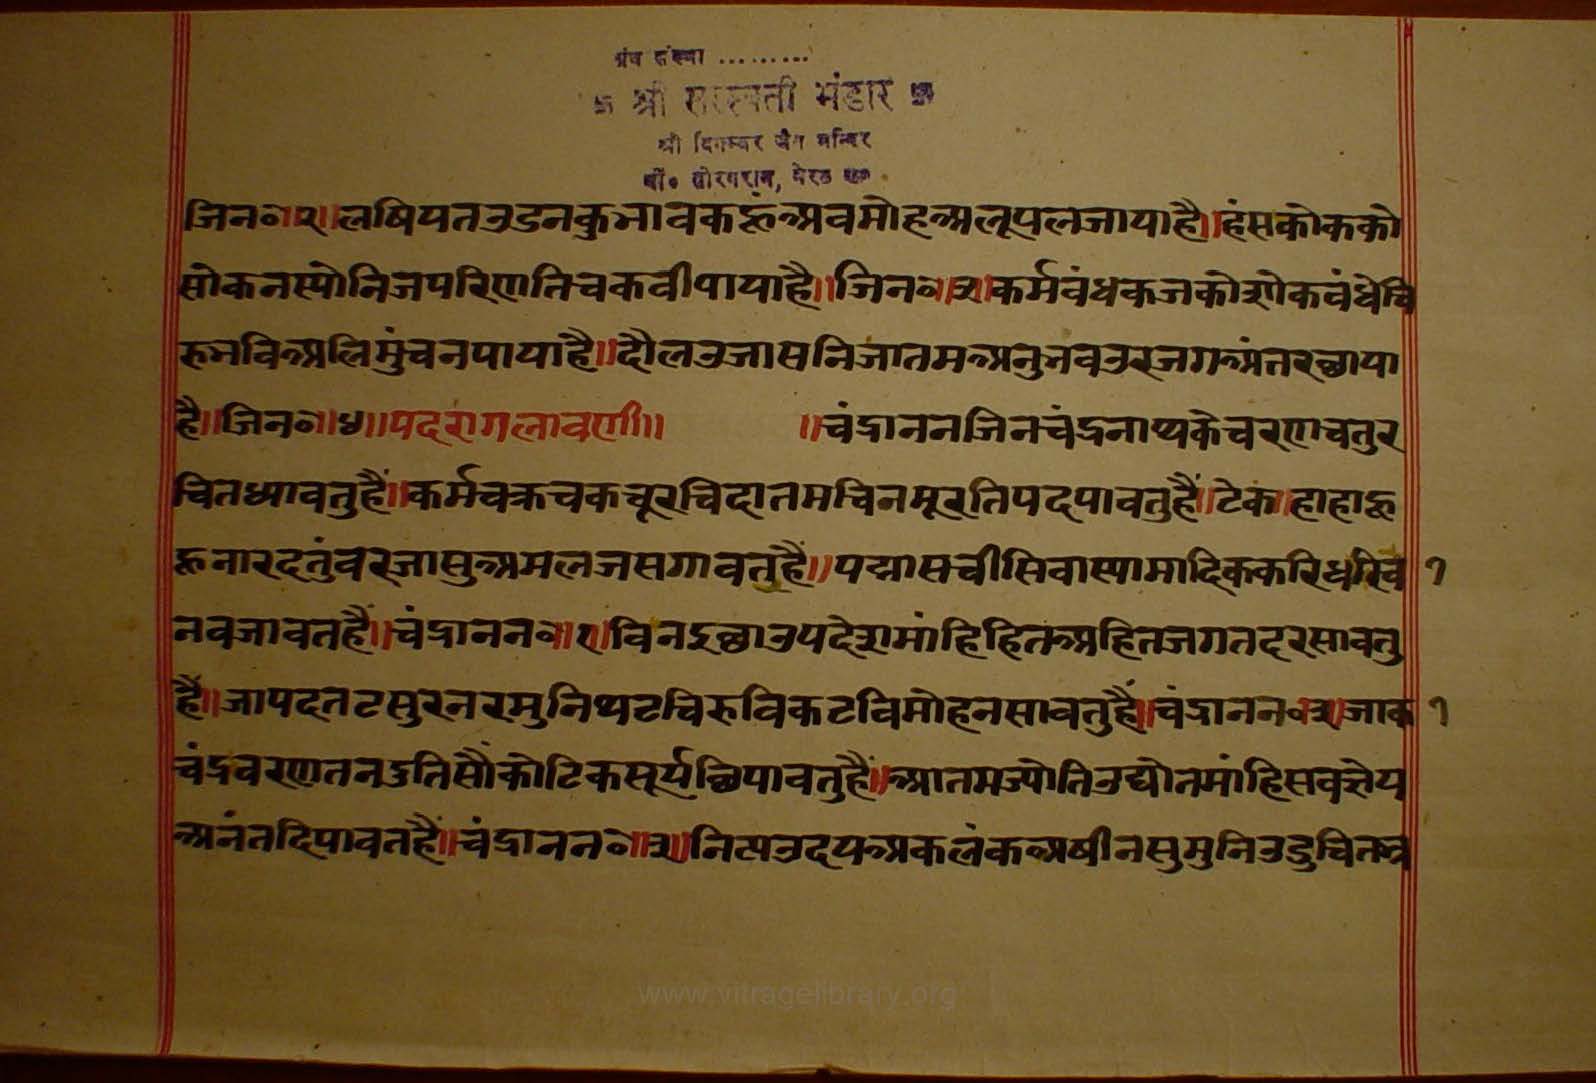 ग्रंथ संख्या .........
श्री सरस्वती भंडार
श्री दिगम्बर जैन मन्दिर
बाँ० तोरगरान, मेरठ
जिन०॥२॥लषिपतउडनकुभावकहूंअवमोहअलूपलजायाहै॥हंसकोकको
सोकनस्योनिजपरिणतिचकवीपायाहै॥जिन०॥३॥कर्मवंधकजकोशोकवंधेचि
रुभविअलिमुंचनपायाहै॥दौलउजासनिजातमअनुभवउरजगअंतरछाया
है॥जिन०॥४॥पदरागलावणी॥ ॥चंद्राननजिनचंद्रनाथकेचरणचतुर
चितध्यावतुहैं॥कर्मचक्रचकचूरचिदातमचिनमूरतिपदपावतुहैं॥टेक॥हाहाहू
हूनारदतुंवरजासुअमलजसगावतुहैं॥पद्मासचीसिवास्यामादिककरिधरिवि
नवजावतहैं॥चंद्रानन०॥१॥विनइछाउपदेशमांहिहितअहितजगतदरसावतु
हैं॥जापदतटसुरनरमुनिघटचिरुविकटविमोहनसावतुहैं॥चंद्रानन०२॥जाक
चंद्रवरणतनदुतिसौंकोटिकसूर्यछिपावतुहैं॥आतमज्योतिउद्योतमांहिसवज्ञेय
अनंतदिपावतहैं॥चंद्रानन०॥३॥नित्यउदयअकलंकअषीनसुमुनिउडुचितअ
www.vitragelibrary.org